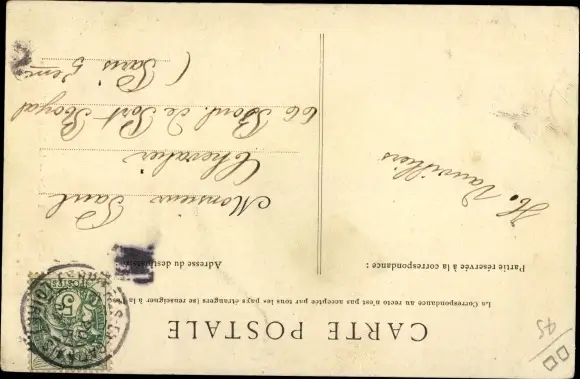 CARTE POSTALE
La Correspondance au recto n'est pas acceptée par tous les pays étrangers (se renseigner à la
Partie réservée à la correspondance :
Adresse du destinataire
H. Vauvilliers
Monsieur Paul
Chevalier
66 Boul. de Port Royal
( Paris 5 ème
5
45